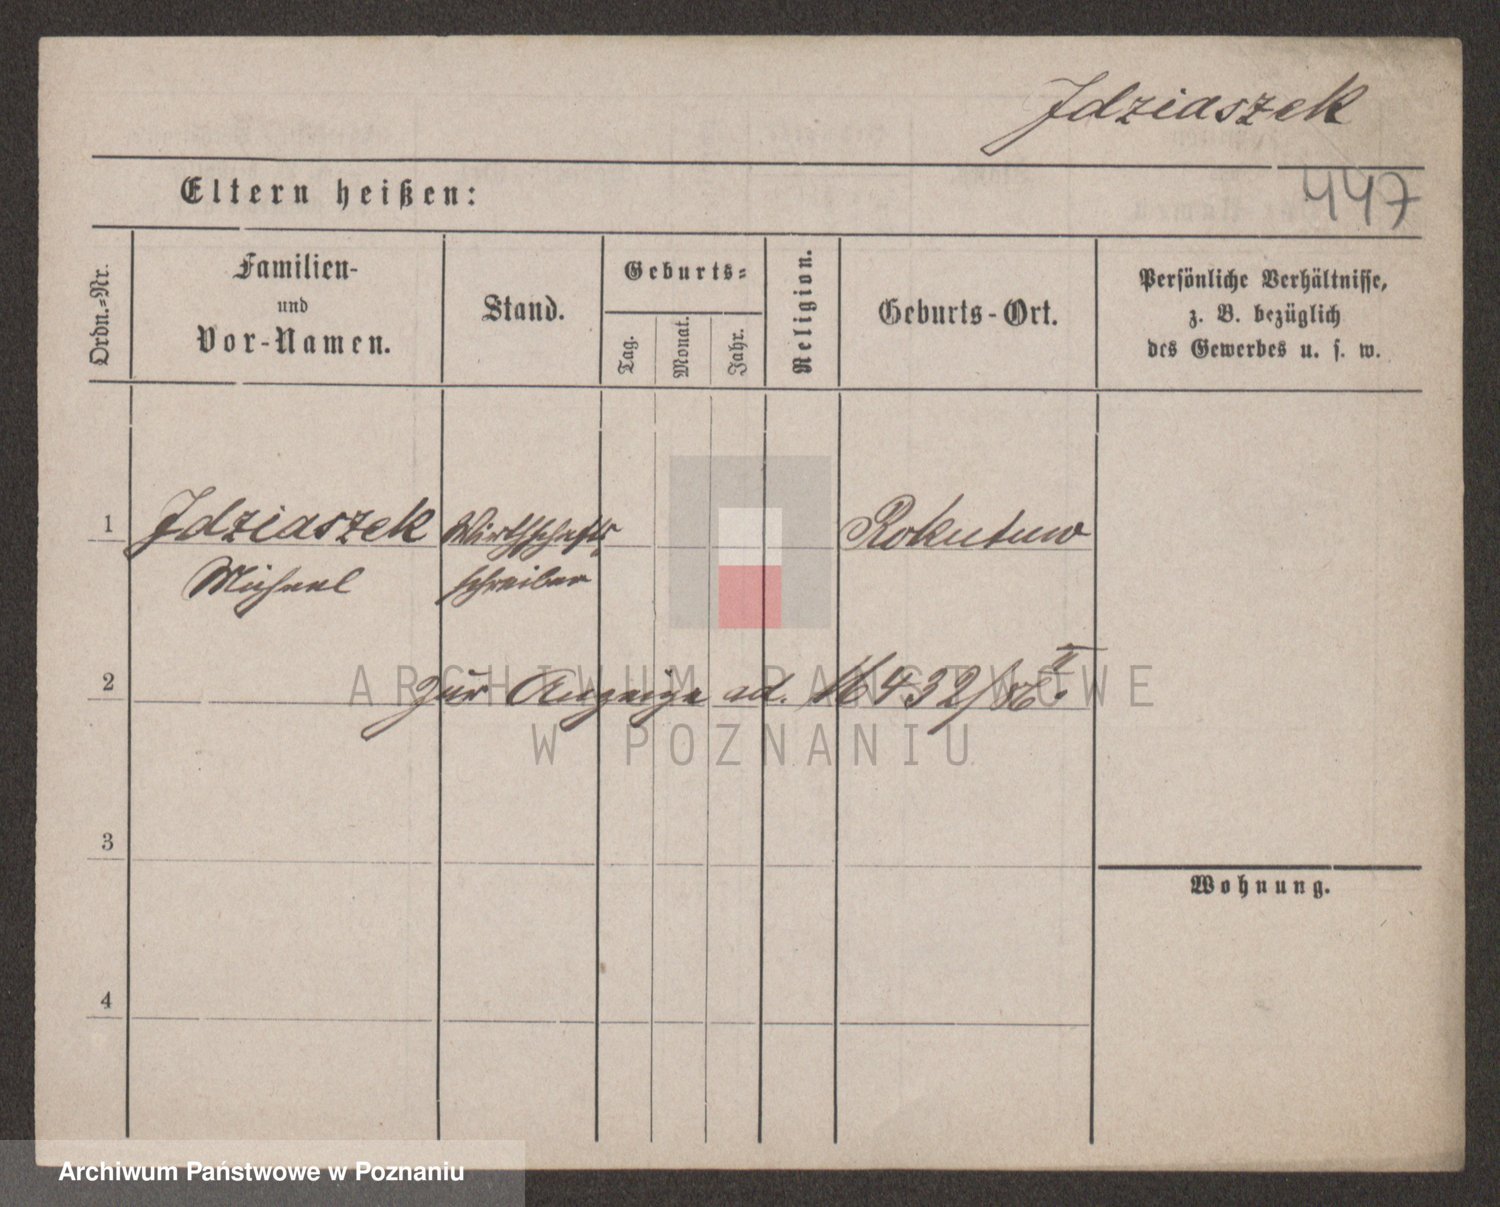 Idziaszek
447
Eltern heißen:
Ordn.=Nr.
Familien-
und
Vor-Namen.
Stand.
Geburts=
Tag.
Monat.
Jahr.
Religion.
Geburts-Ort.
Persönliche Verhältnisse,
z. B. bezüglich
des Gewerbes u. s. w.
1 Idziaszek Wirthschafts Rokutowo
Michael schreiber
2 zur Anzeige ad. 16432/86 II.
ARCHIWUM PAŃSTWOWE
W POZNANIU
3
Wohnung.
4
Archiwum Państwowe w Poznaniu